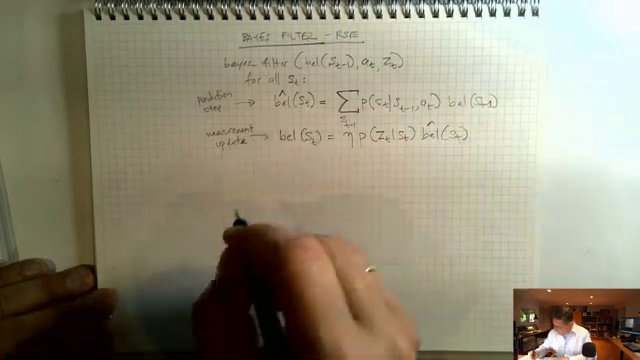 BAYES FILTER - RSE
bayes filter (bel(S_{t-1}), a_t, Z_t)
for all S_t:
prediction step → bel̂(S_t) = ∑_{S_{t-1}} p(S_t|S_{t-1}, a_t) bel(S_{t-1})
measurement update → bel(S_t) = η p(Z_t|S_t) bel̂(S_t)